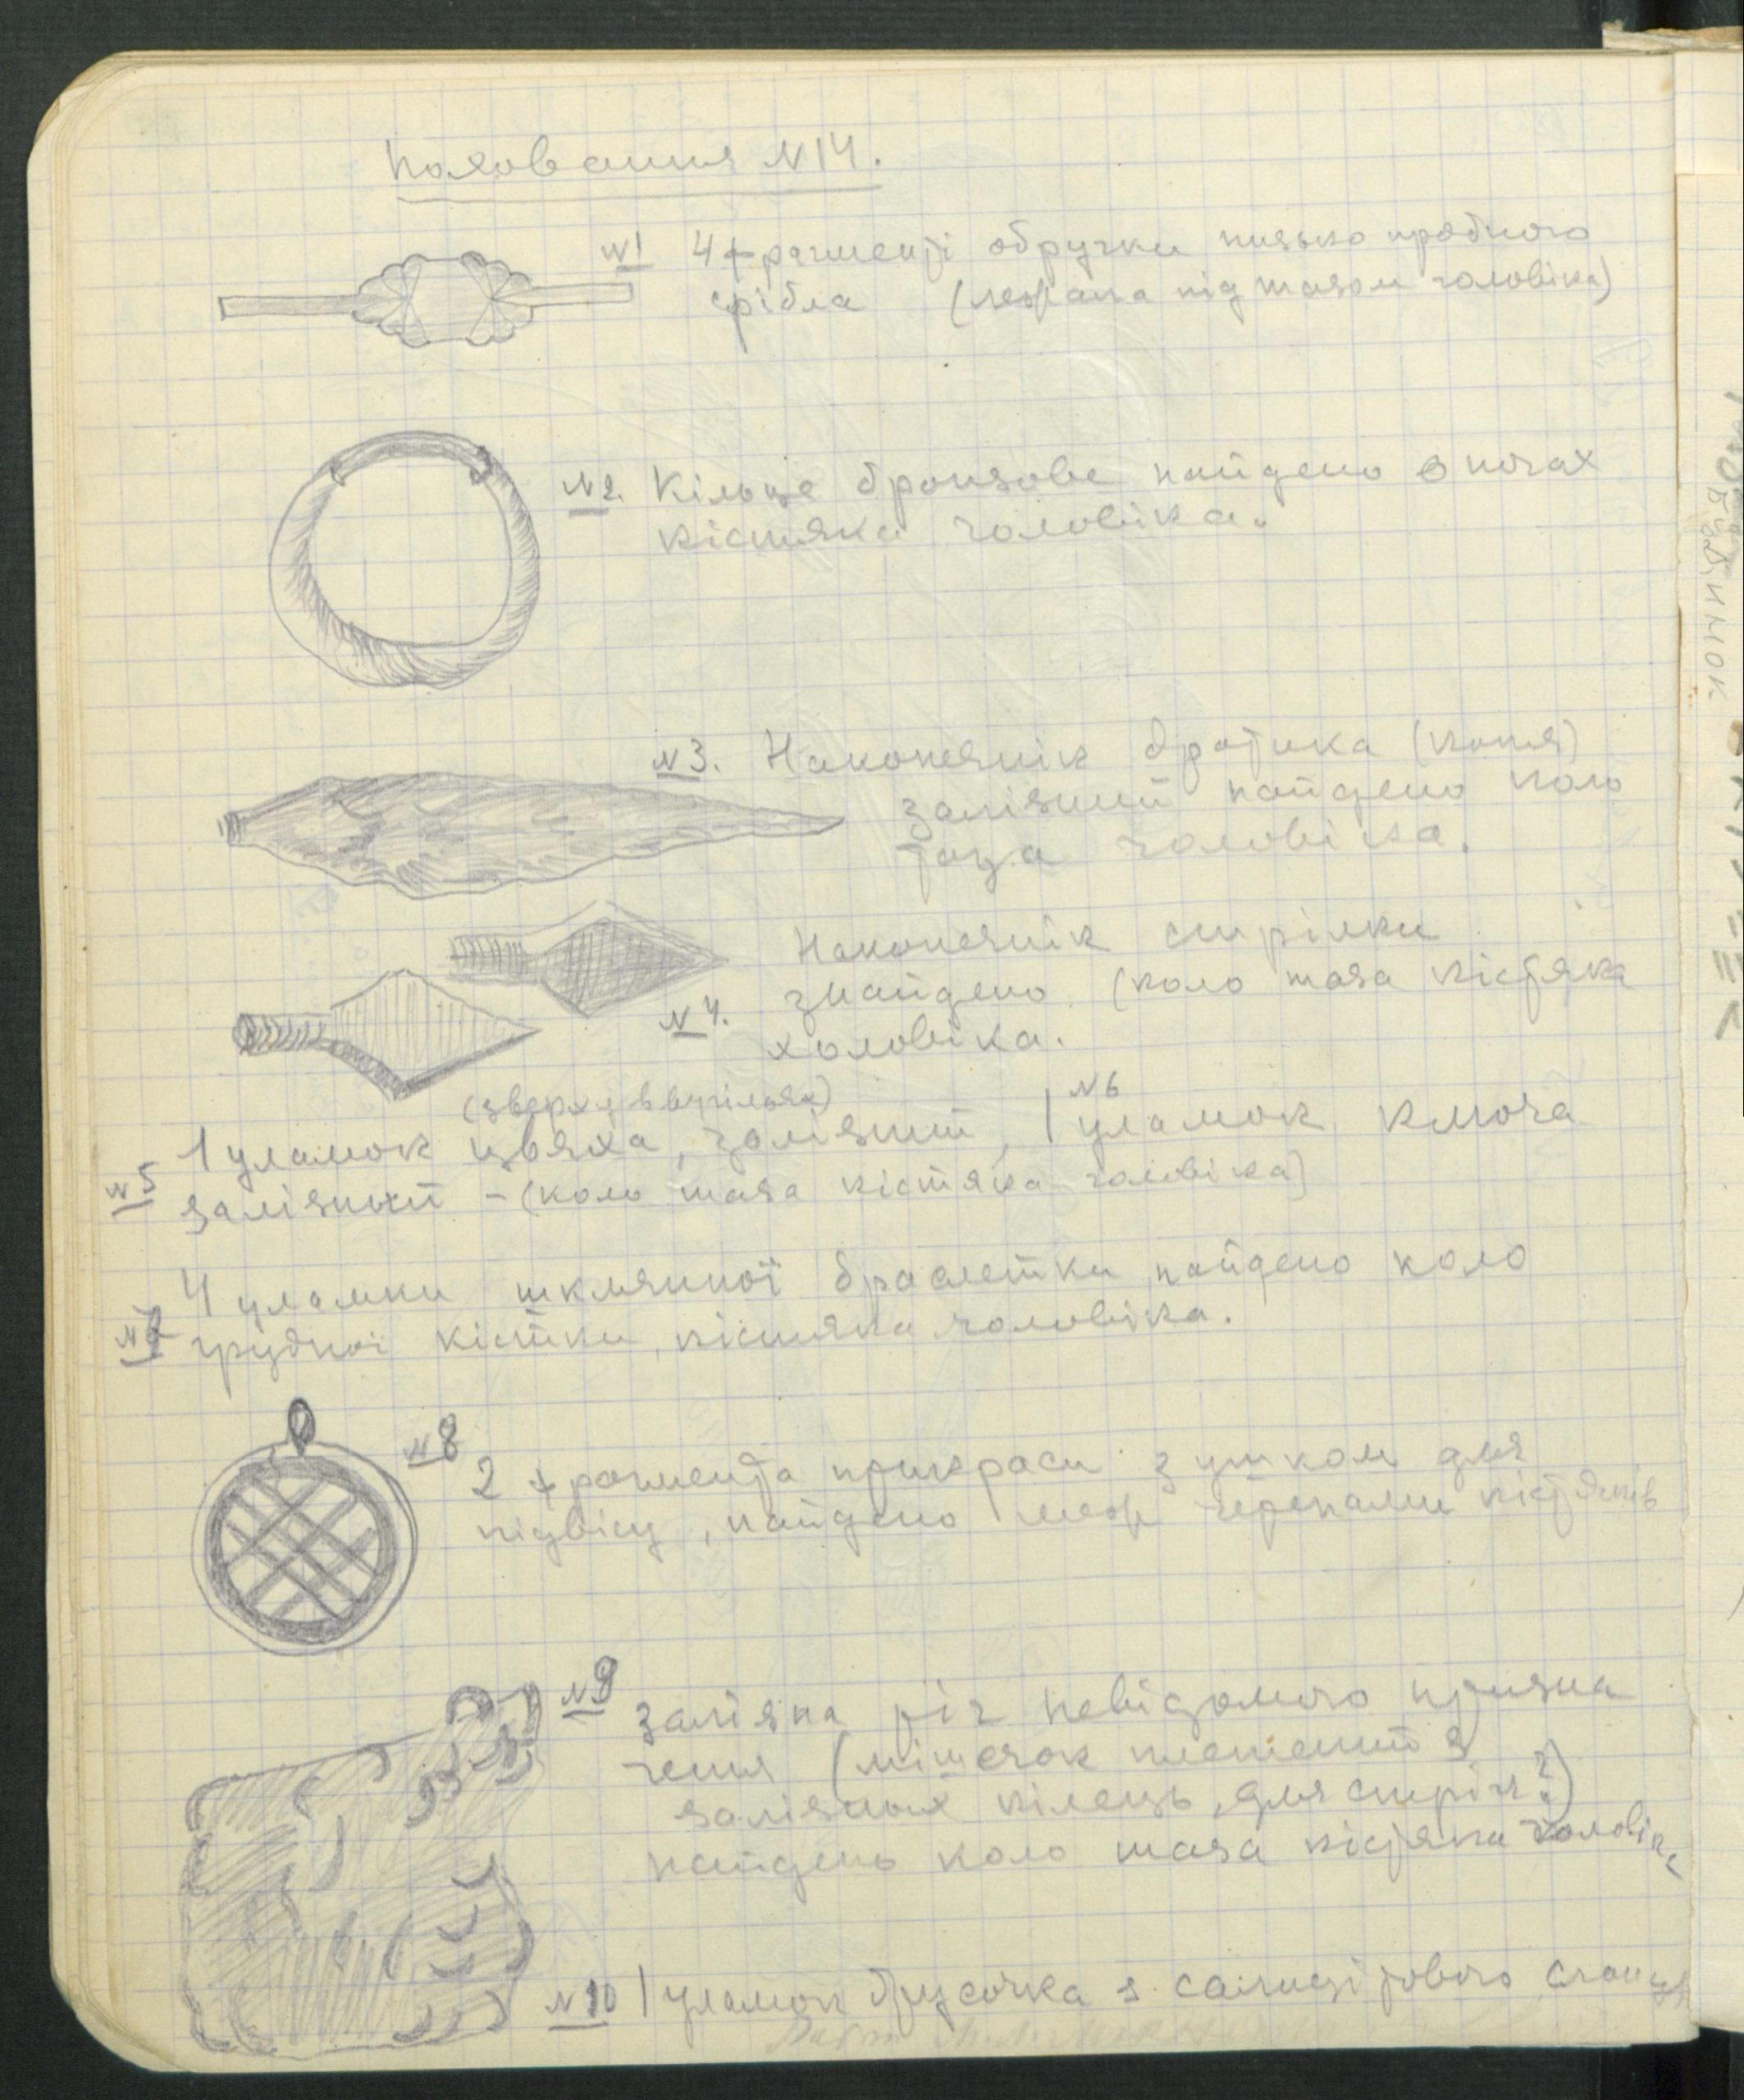 Поховання N14.
N1 4 фрагменті обручки низько пробного
срібла (лежала під тазом чоловіка)
N2. Кільце бронзове найдено в ногах
кістяка чоловіка.
N3. Наконечнік дротика (копія)
залізний найдено коло
таза чоловіка.
Наконечнік стрілки
N4. знайдено (коло таза кістяка
чоловіка.
(зверху в вугільях)
N5 1 уламок цвяха, залізний, N6 1 уламок ключа
залізный - (коло таза кістяка чоловіка)
4 уламки шклянної браслетки найдено коло
N7 грудної кістки, кістяка чоловіка.
N8 2 фрагмента прикраси з ушком для
підвісу, найдено меж черепами кістяків
N9 залізна річ невідомого призна
чення (мішечок плетений з
залізних кілець, для стріл?)
найдень коло таза кістяка чоловіка
N10 1 уламок брусочка з
Будинок